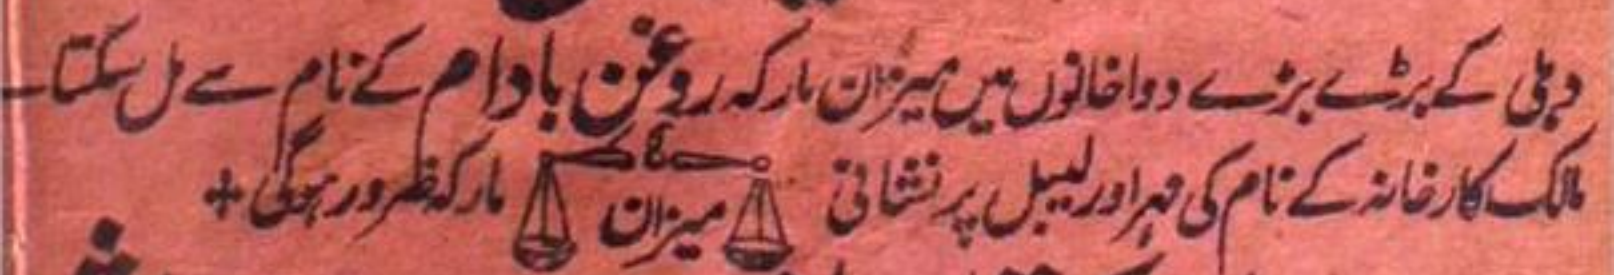 دہلی کے بڑے بڑے دواخانوں میں میزان مارکہ روغن بادام کے نام سے مل سکتا
مالک کارخانہ کے نام کی مہر اور لیبل پر نشانی میزان مارکہ ضرور ہوگی